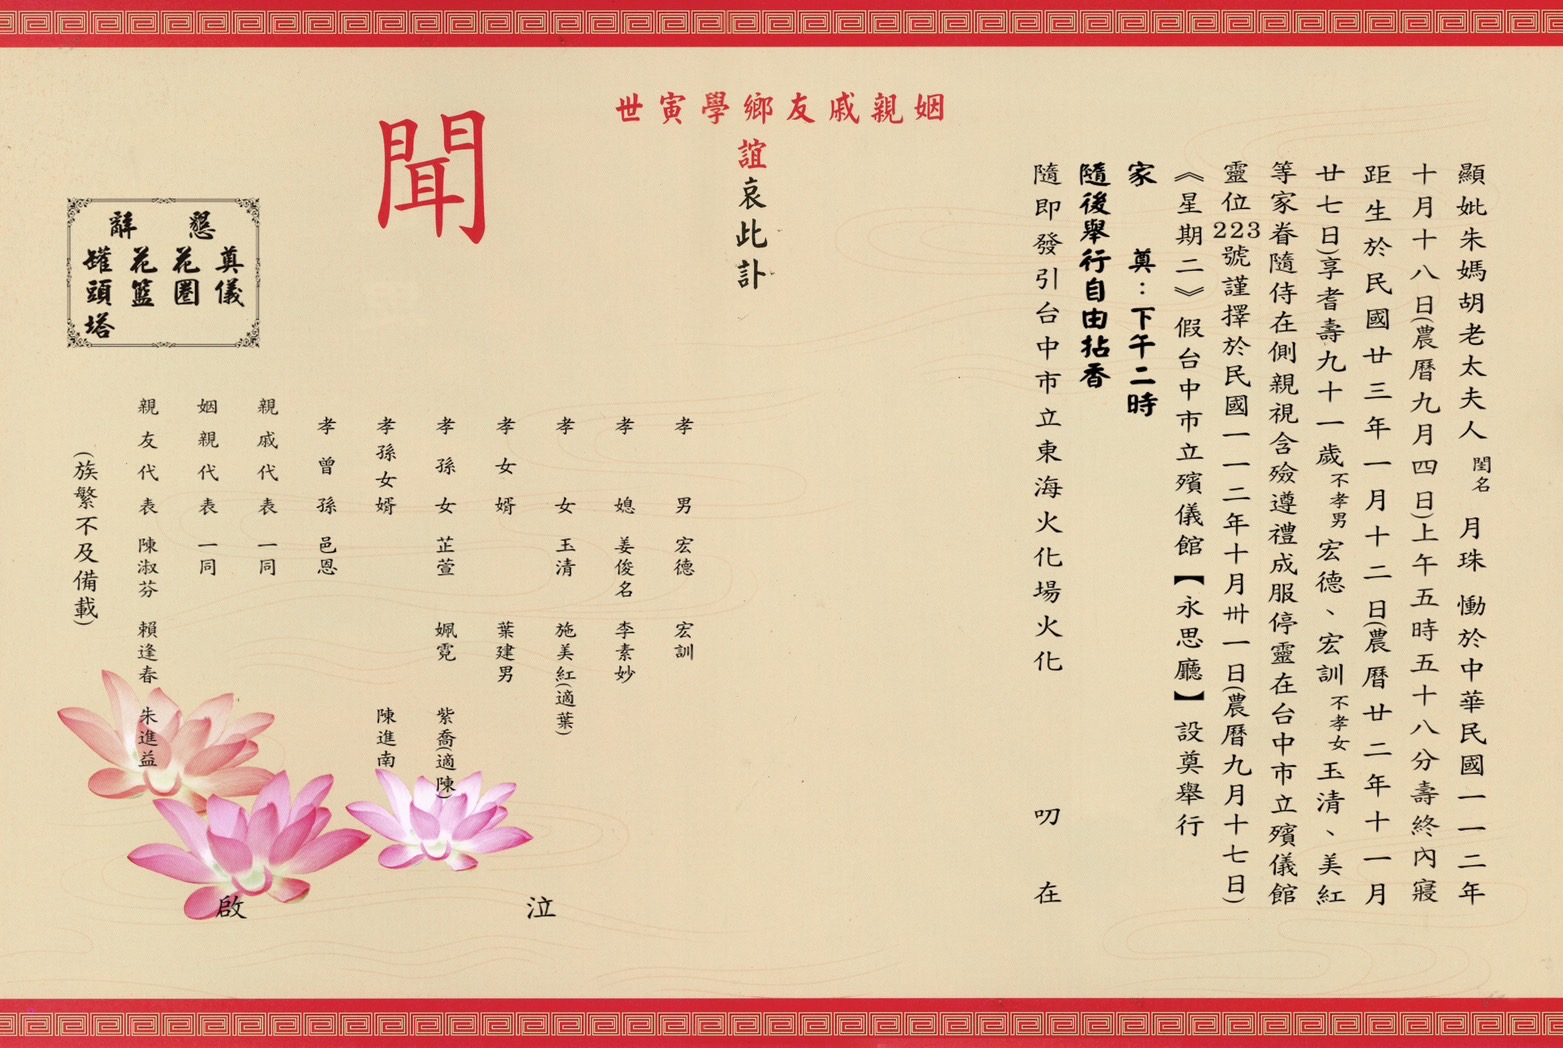 顯妣朱媽胡老太夫人閨名月珠慟於中華民國一一二年
十月十八日(農曆九月四日)上午五時五十八分壽終內寢
距生於民國廿三年一月十二日(農曆廿二年十一月
廿七日)享耆壽九十一歲不孝男宏德、宏訓不孝女玉清、美紅
等家眷隨侍在側親視含殮遵禮成服停靈在台中市立殯儀館
靈位223號謹擇於民國一一二年十月卅一日(農曆九月十七日)
《星期二》假台中市立殯儀館【永思廳】設奠舉行
家奠:下午二時
隨後舉行自由拈香
隨即發引台中市立東海火化場火化 叨在
姻親戚友鄉學寅世
誼哀此訃
聞
孝男 宏德 宏訓
孝媳 姜俊名 李素妙
孝女 玉清 施美紅(適葉)
孝女婿 葉建男
孝孫女 芷萱 姵霓 紫喬(適陳)
孝孫女婿 陳進南
孝曾孫 邑恩
親戚代表 一同
姻親代表 一同
親友代表 陳淑芬 賴逢春 朱進益
(族繁不及備載)
泣啟
懇辭
奠儀
花圈
花籃
罐頭塔